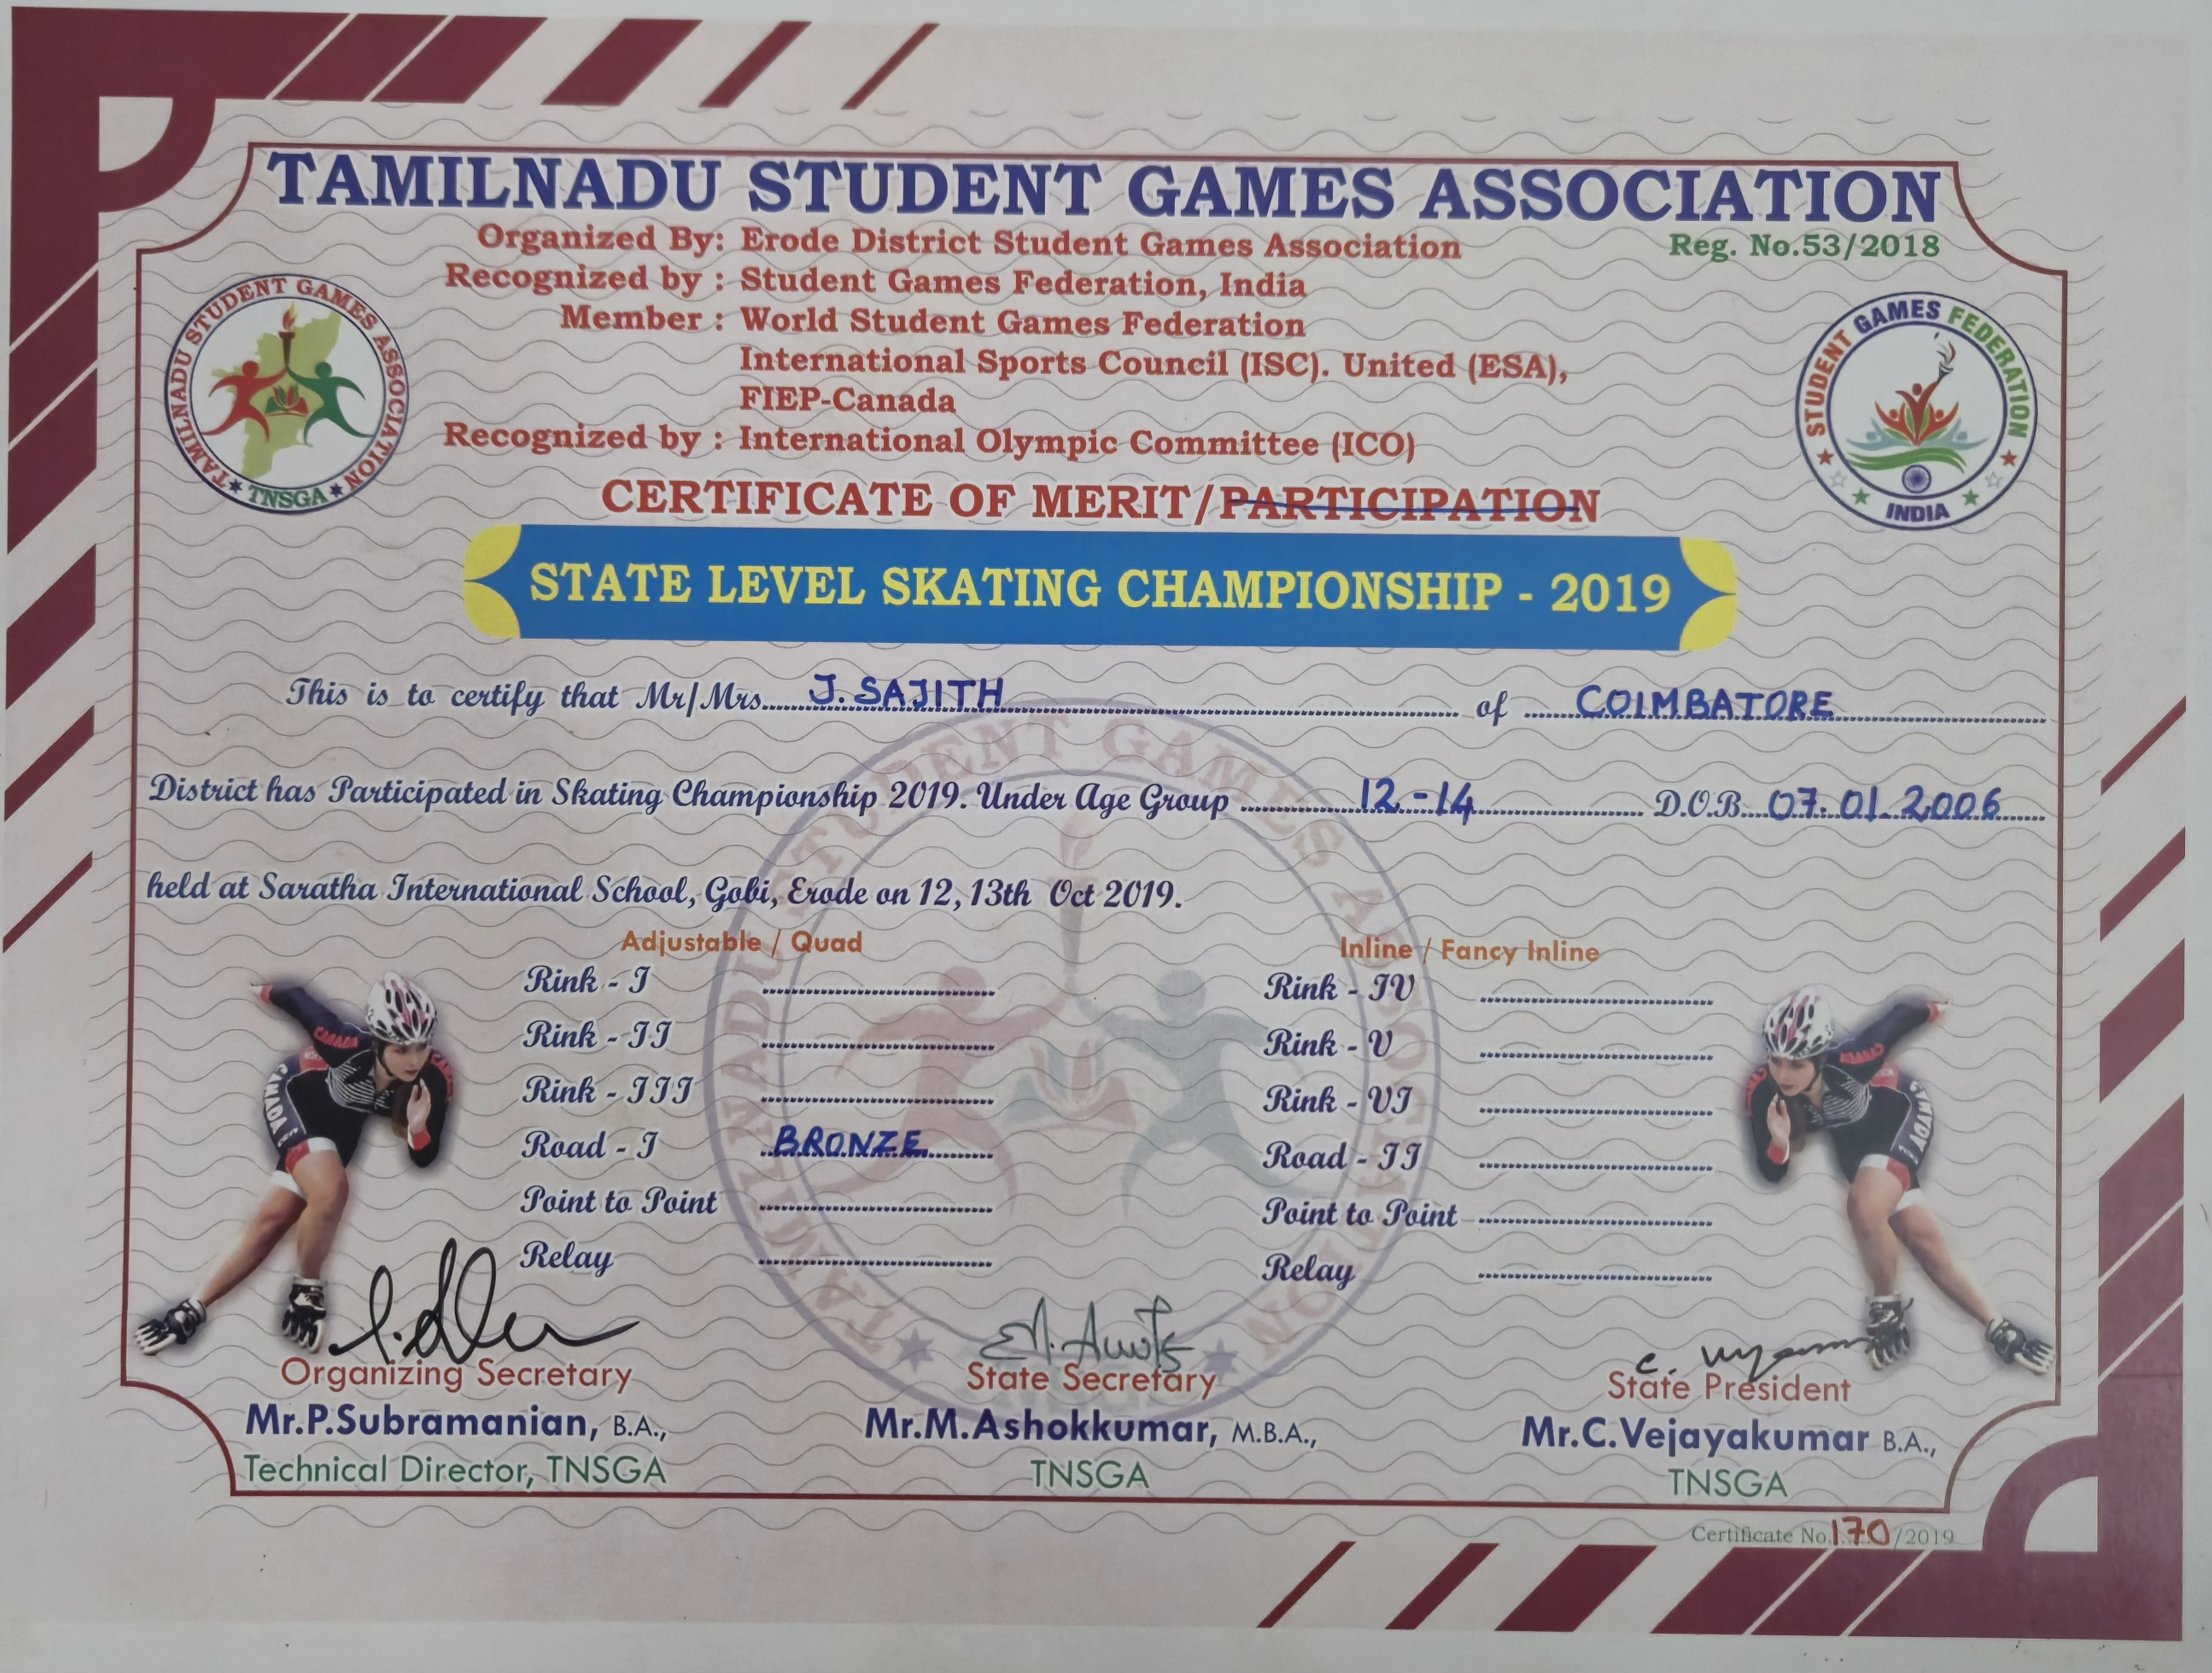 TAMILNADU STUDENT GAMES ASSOCIATION
Organized By: Erode District Student Games Association
Reg. No.53/2018
Recognized by : Student Games Federation, India
Member : World Student Games Federation
International Sports Council (ISC). United (ESA),
FIEP-Canada
Recognized by : International Olympic Committee (ICO)
TAMILNADU STUDENT GAMES ASSOCIATION
TNSGA
STUDENT GAMES FEDERATION
INDIA
CERTIFICATE OF MERIT/PARTICIPATION
STATE LEVEL SKATING CHAMPIONSHIP - 2019
This is to certify that Mr/Mrs. J. SAJITH of COIMBATORE
District has Participated in Skating Championship 2019. Under Age Group 12-14 D.O.B. 07.01.2006
held at Saratha International School, Gobi, Erode on 12,13th Oct 2019.
Adjustable / Quad
Rink - I
Rink - II
Rink - III
Road - I BRONZE
Point to Point
Relay
Inline / Fancy Inline
Rink - IV
Rink - V
Rink - VI
Road - II
Point to Point
Relay
CANADA
CANADA
Organizing Secretary
Mr.P.Subramanian, B.A.,
Technical Director, TNSGA
State Secretary
Mr.M.Ashokkumar, M.B.A.,
TNSGA
State President
Mr.C.Vejayakumar B.A.,
TNSGA
Certificate No. 170/2019